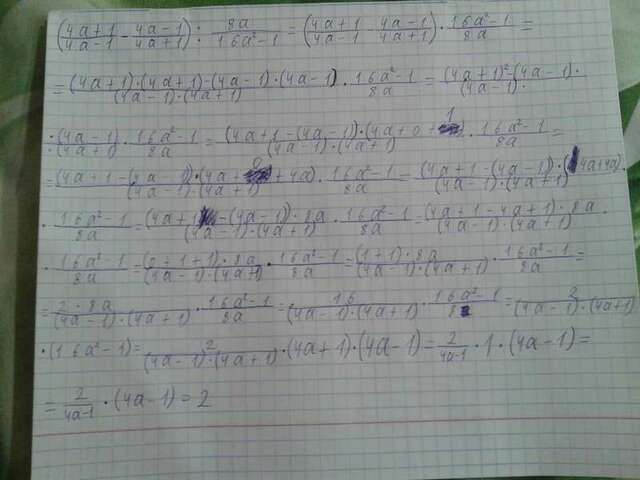 ((4a+1)/(4a-1) - (4a-1)/(4a+1)) : 8a/(16a²-1) = ((4a+1)/(4a-1) - (4a-1)/(4a+1)) · (16a²-1)/8a =
= ((4a+1)·(4a+1)-(4a-1)·(4a-1))/((4a-1)·(4a+1)) · (16a²-1)/8a = ((4a+1)²-(4a-1)·/(4a-1)·
·(4a-1)/(4a+1) · (16a²-1)/8a = ((4a+1-(4a-1))·(4a+0+1)/((4a-1)·(4a+1)) · (16a²-1)/8a =
= ((4a+1-(4a-1))·(4a+0+4a)/((4a-1)·(4a+1)) · (16a²-1)/8a = ((4a+1-(4a-1))·(4a+4a)/((4a-1)·(4a+1)) ·
· (16a²-1)/8a = ((4a+1-(4a-1))·8a/((4a-1)·(4a+1)) · (16a²-1)/8a = ((4a+1-4a+1)·8a/((4a-1)·(4a+1)) ·
· (16a²-1)/8a = ((0+1+1)·8a/((4a-1)·(4a+1)) · (16a²-1)/8a = ((1+1)·8a/((4a-1)·(4a+1)) · (16a²-1)/8a =
= 2·8a/((4a-1)·(4a+1)) · (16a²-1)/8a = 16/((4a-1)·(4a+1)) · (16a²-1)/8 = 2/((4a-1)·(4a+1)
·(16a²-1) = 2/((4a-1)·(4a+1)) ·(4a+1)·(4a-1) = 2/(4a-1) · 1 · (4a-1) =
= 2/(4a-1) · (4a-1) = 2